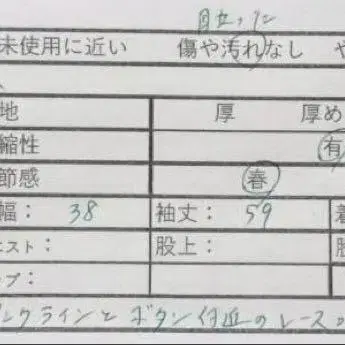 目立った
未使用に近い 傷や汚れなし や
地 厚 厚め
縮性 有
節感 春
幅： 38 袖丈： 59 着
エスト： 股上： 股
ップ：
ンクラインとボタン付近のレースの